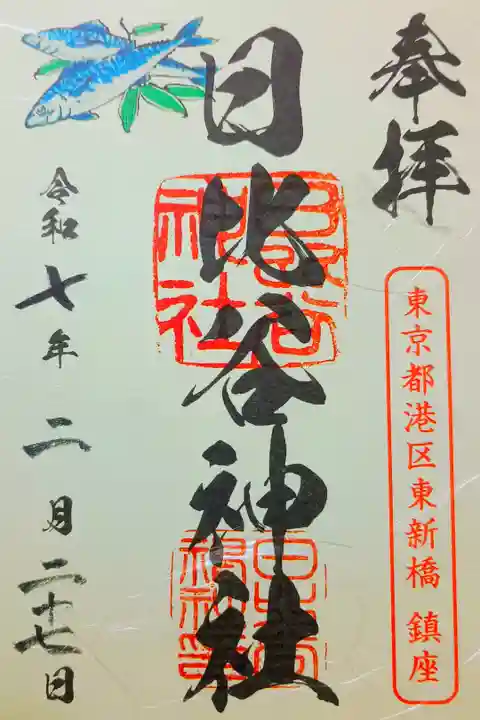 奉拝
東京都港区東新橋 鎮座
日比谷神社
令和七年 二月二十七日